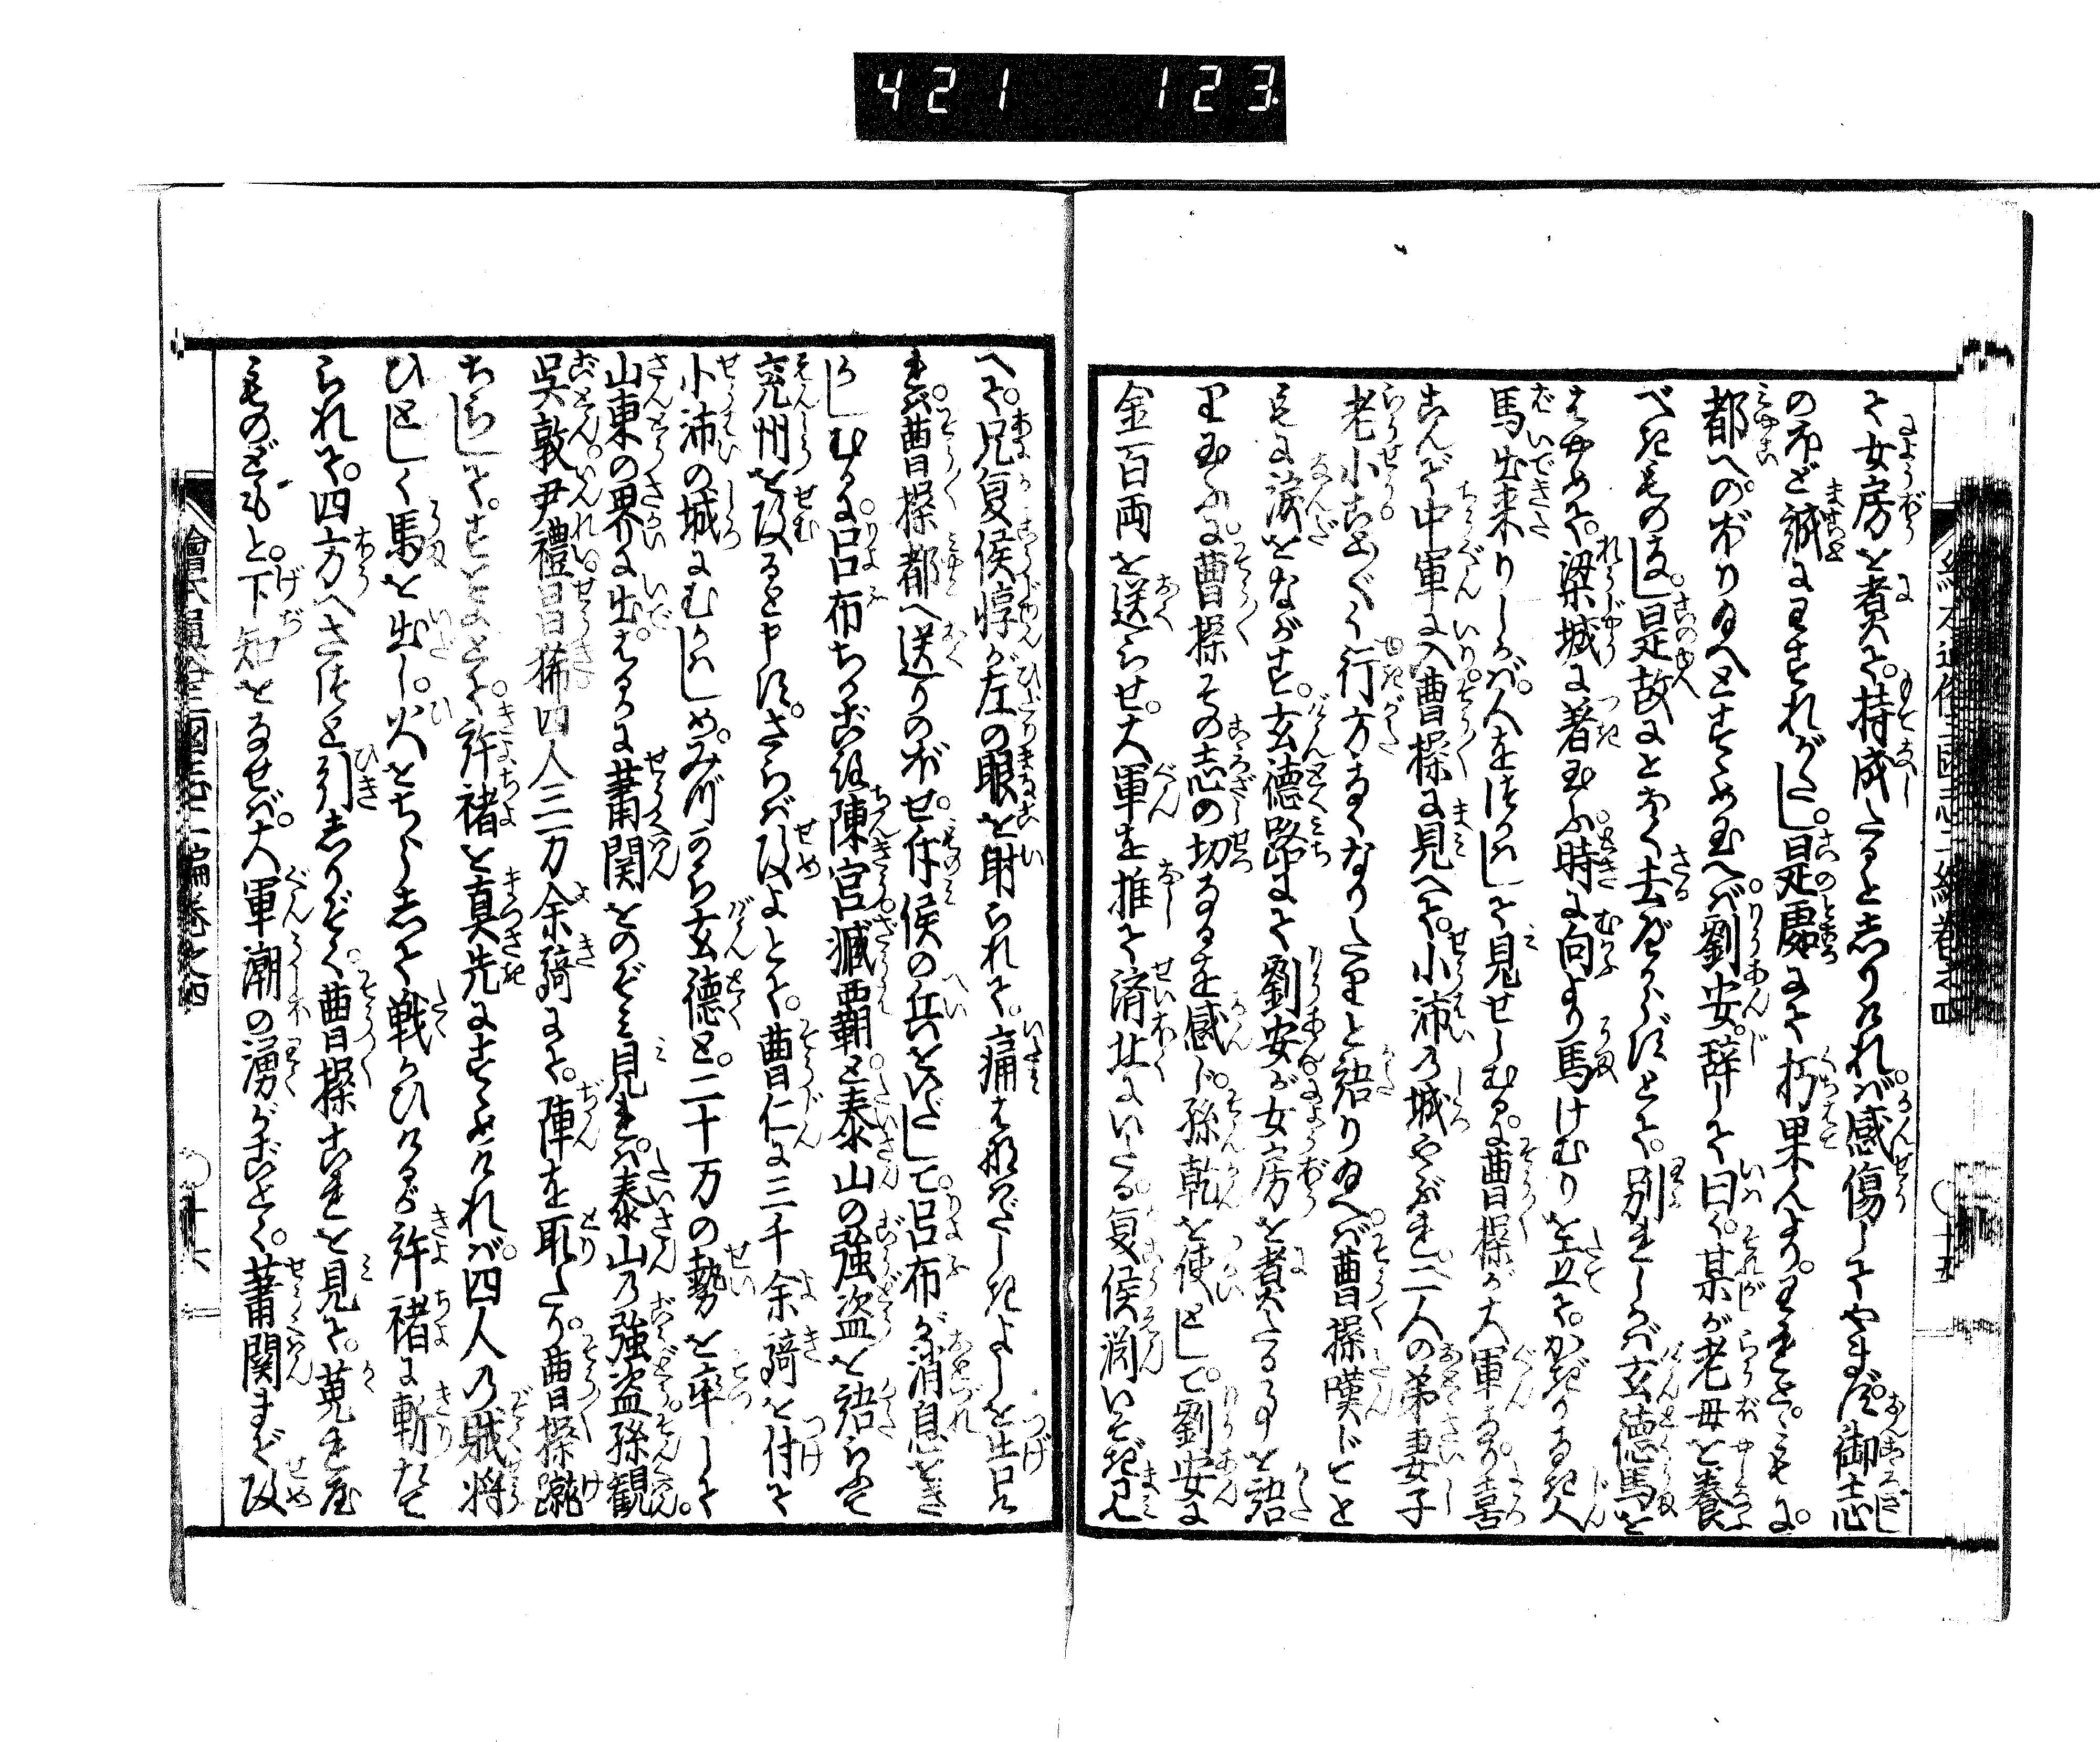 421 123
て女房を煮て。持成たると志りければ。感傷してやまず。御志
のほど誠にわすれがたし。是處にて朽果んより。われとともに。
都へのぼりたまへとすゝめ玉へば。劉安辞して曰く。某が老母を養
べきものなし。是故にとほく去がたしとて。別れしかば玄徳馬を
はやめて。梁城に著玉ふ。時に向より馬けむりを立て。おびたゞしき人
馬出来りしかば。人をつかはして見せしむるに曹操が大軍なり。喜
こんで中軍に入。曹操に見へて。小沛の城やぶれ。二人の弟妻子
老小ことごとく行方なくなりたりと語りたまへば。曹操嘆じとと
もに涙をながす。玄徳路にて劉安が女房を煮たる事を語
り玉ふに。曹操その志の切なるを感じ。孫乾を使として。劉安に
金一百両を送らせ。大軍を推て済北にいたる。夏侯淵いそぎまみ
へて。兄夏侯惇が左の眼を射られて。痛はなはだしきよしを告け
れば。曹操都へ送りのぼせ。物見の兵をいだして。呂布が消息をき
かしむるに。呂布ちかごろ陳宮臧覇と。泰山の強盗を語らふて
兗州を攻ると申す。さらば攻よとて。曹仁に三千余騎を付て
小沛の城にむかはしめ。みづから玄徳と。二十万の勢を率して
山東の界に出。はるかに蕭関をのぞみ見れば。泰山の強盗孫観。
呉敦尹禮昌豨四人三万余騎にて。陣を取たり。曹操蹴
ちらしてすゝめとて。許褚を真先にすゝめければ。四人の賊将
ひとしく馬を出し。火をちらして戦かひけるが許褚に斬たて
られて。四方へさつと引しりぞく。曹操これを見て。蒐れ
ものどもと。下知をなせば。大軍潮の湧がごとく。蕭関まで攻
繪本通俗三國志二編巻之四 十五
繪本通俗三國志二編巻之四 十六